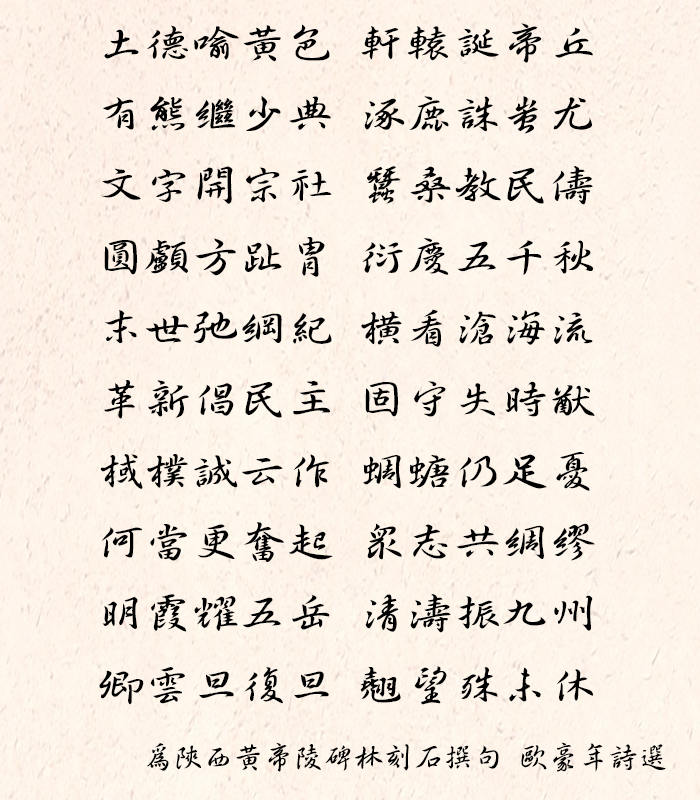 土德喻黃色 軒轅誕帝丘
有熊繼少典 涿鹿誅蚩尤
文字開宗社 蠶桑教民儔
圓顱方趾冑 衍慶五千秋
末世弛綱紀 橫看滄海流
革新倡民主 固守失時猷
棫樸誠云作 蜩螗仍足憂
何當更奮起 眾志共綢繆
明霞耀五岳 清濤振九州
卿雲旦復旦 翹望殊未休
為陝西黃帝陵碑林刻石撰句 歐豪年詩選